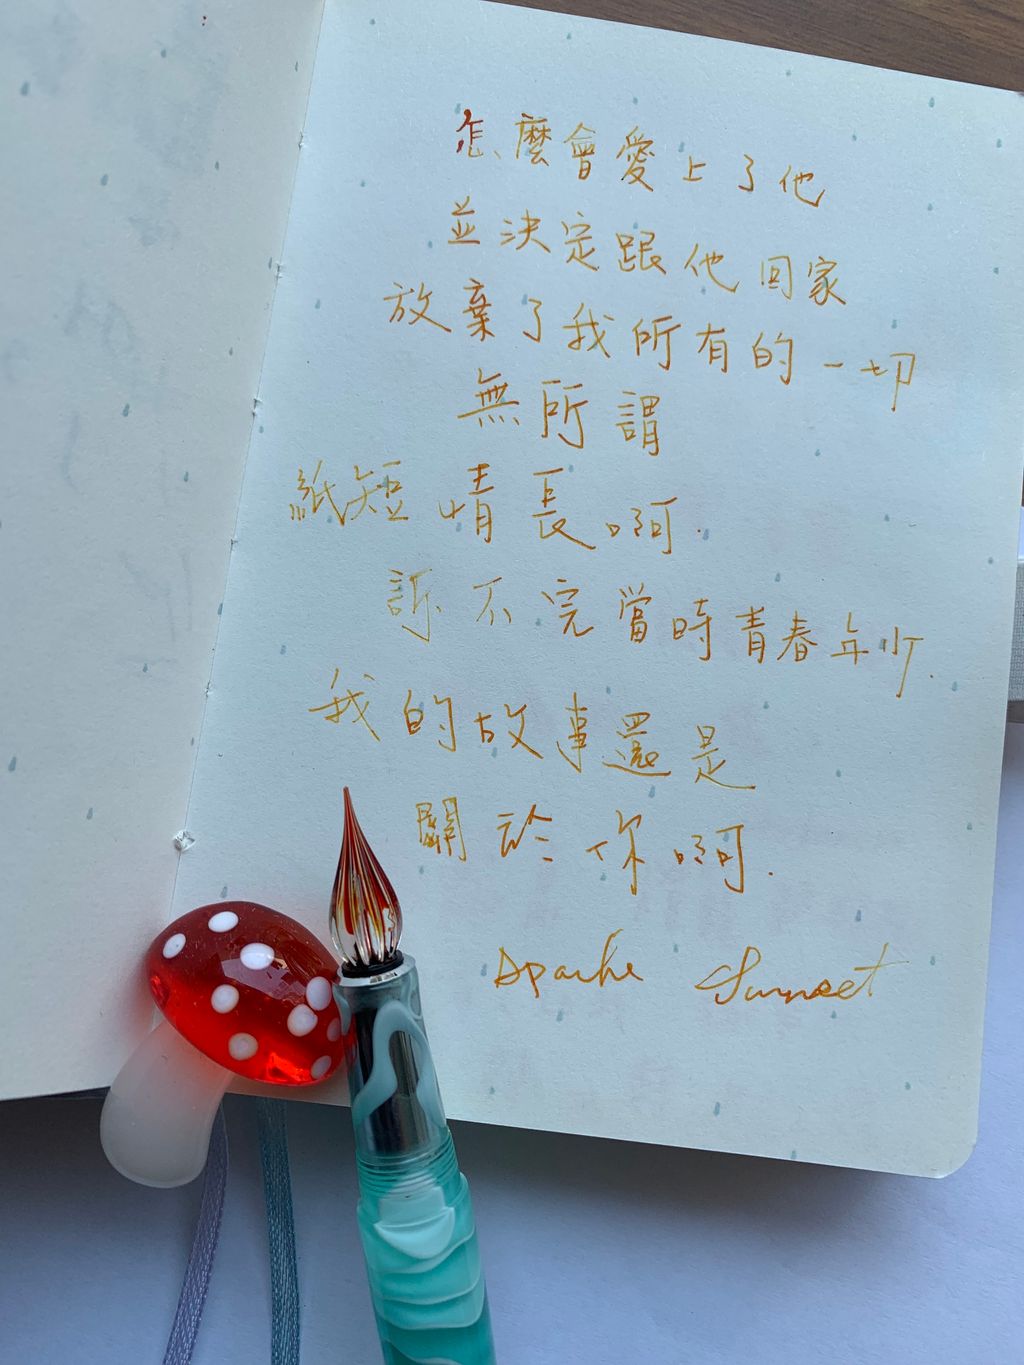 怎麼會愛上了他
並決定跟他回家
放棄了我所有的一切
無所謂
紙短情長啊.
訴不完當時青春年少.
我的故事還是
關於你啊.
Apache Sunset